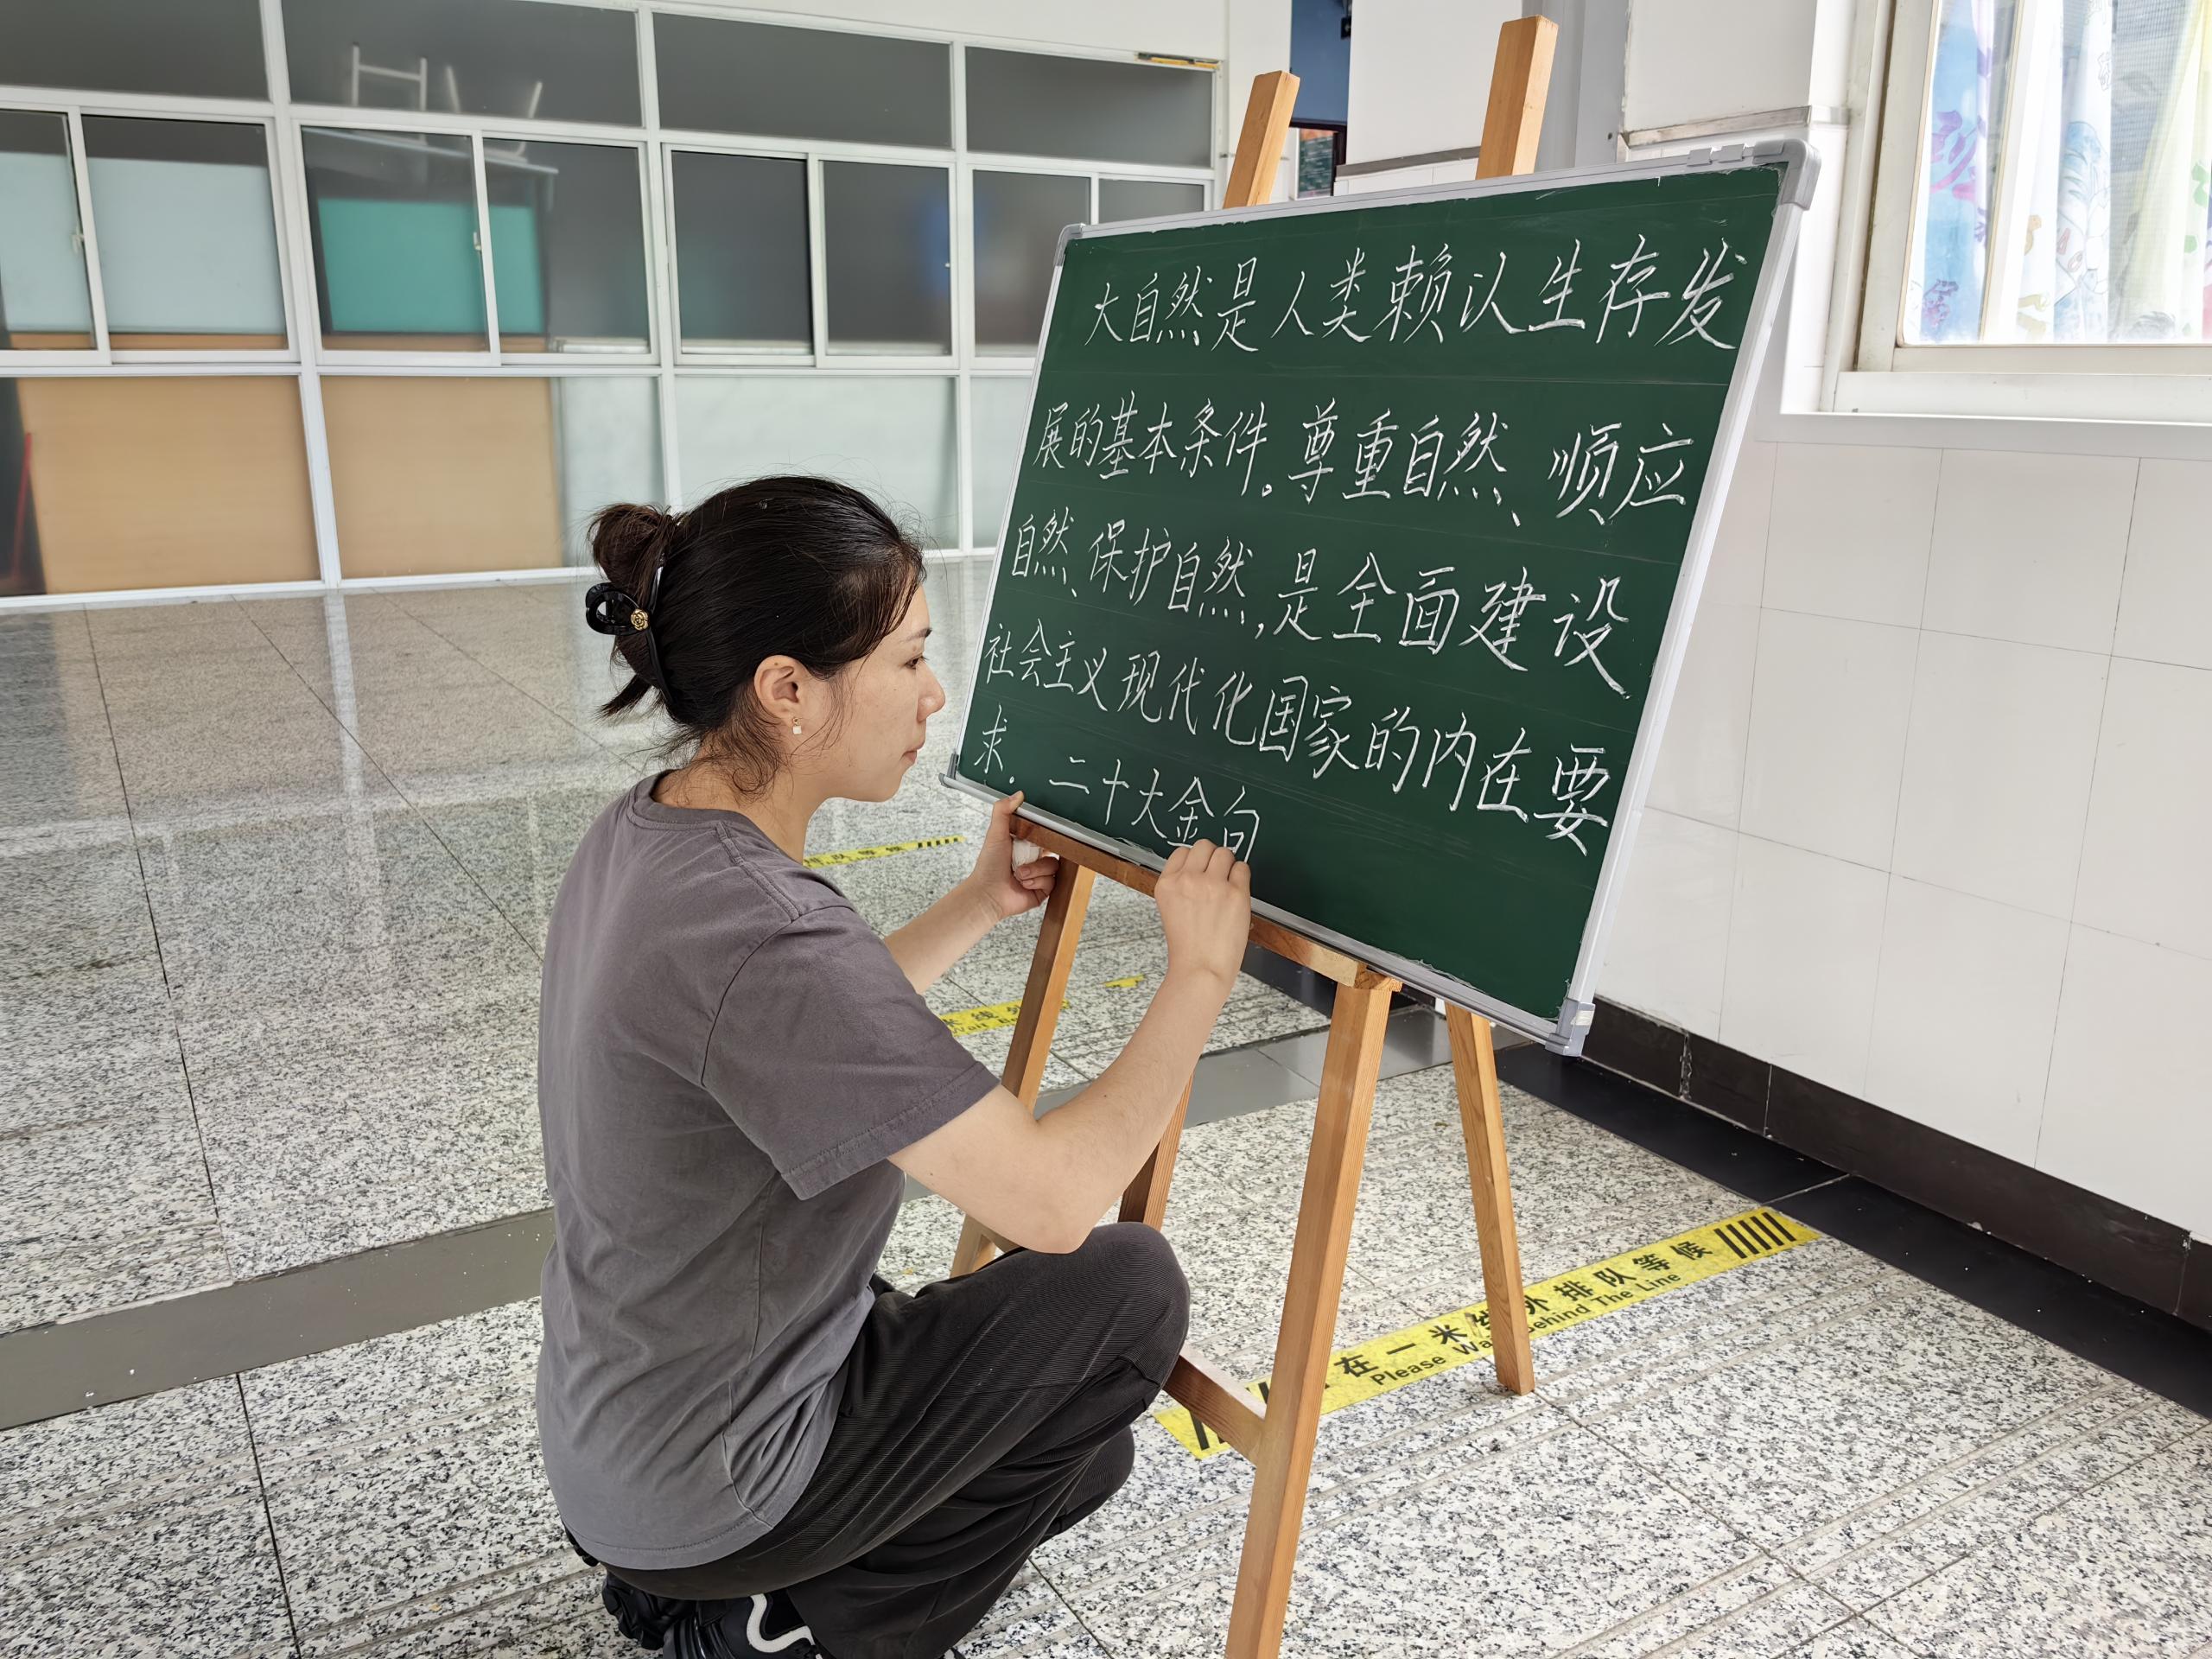 大自然是人类赖认生存发
展的基本条件。尊重自然、顺应
自然、保护自然,是全面建设
社会主义现代化国家的内在要
求. 二十大金句
在一米线外排队等候
Please Wait Behind The Line